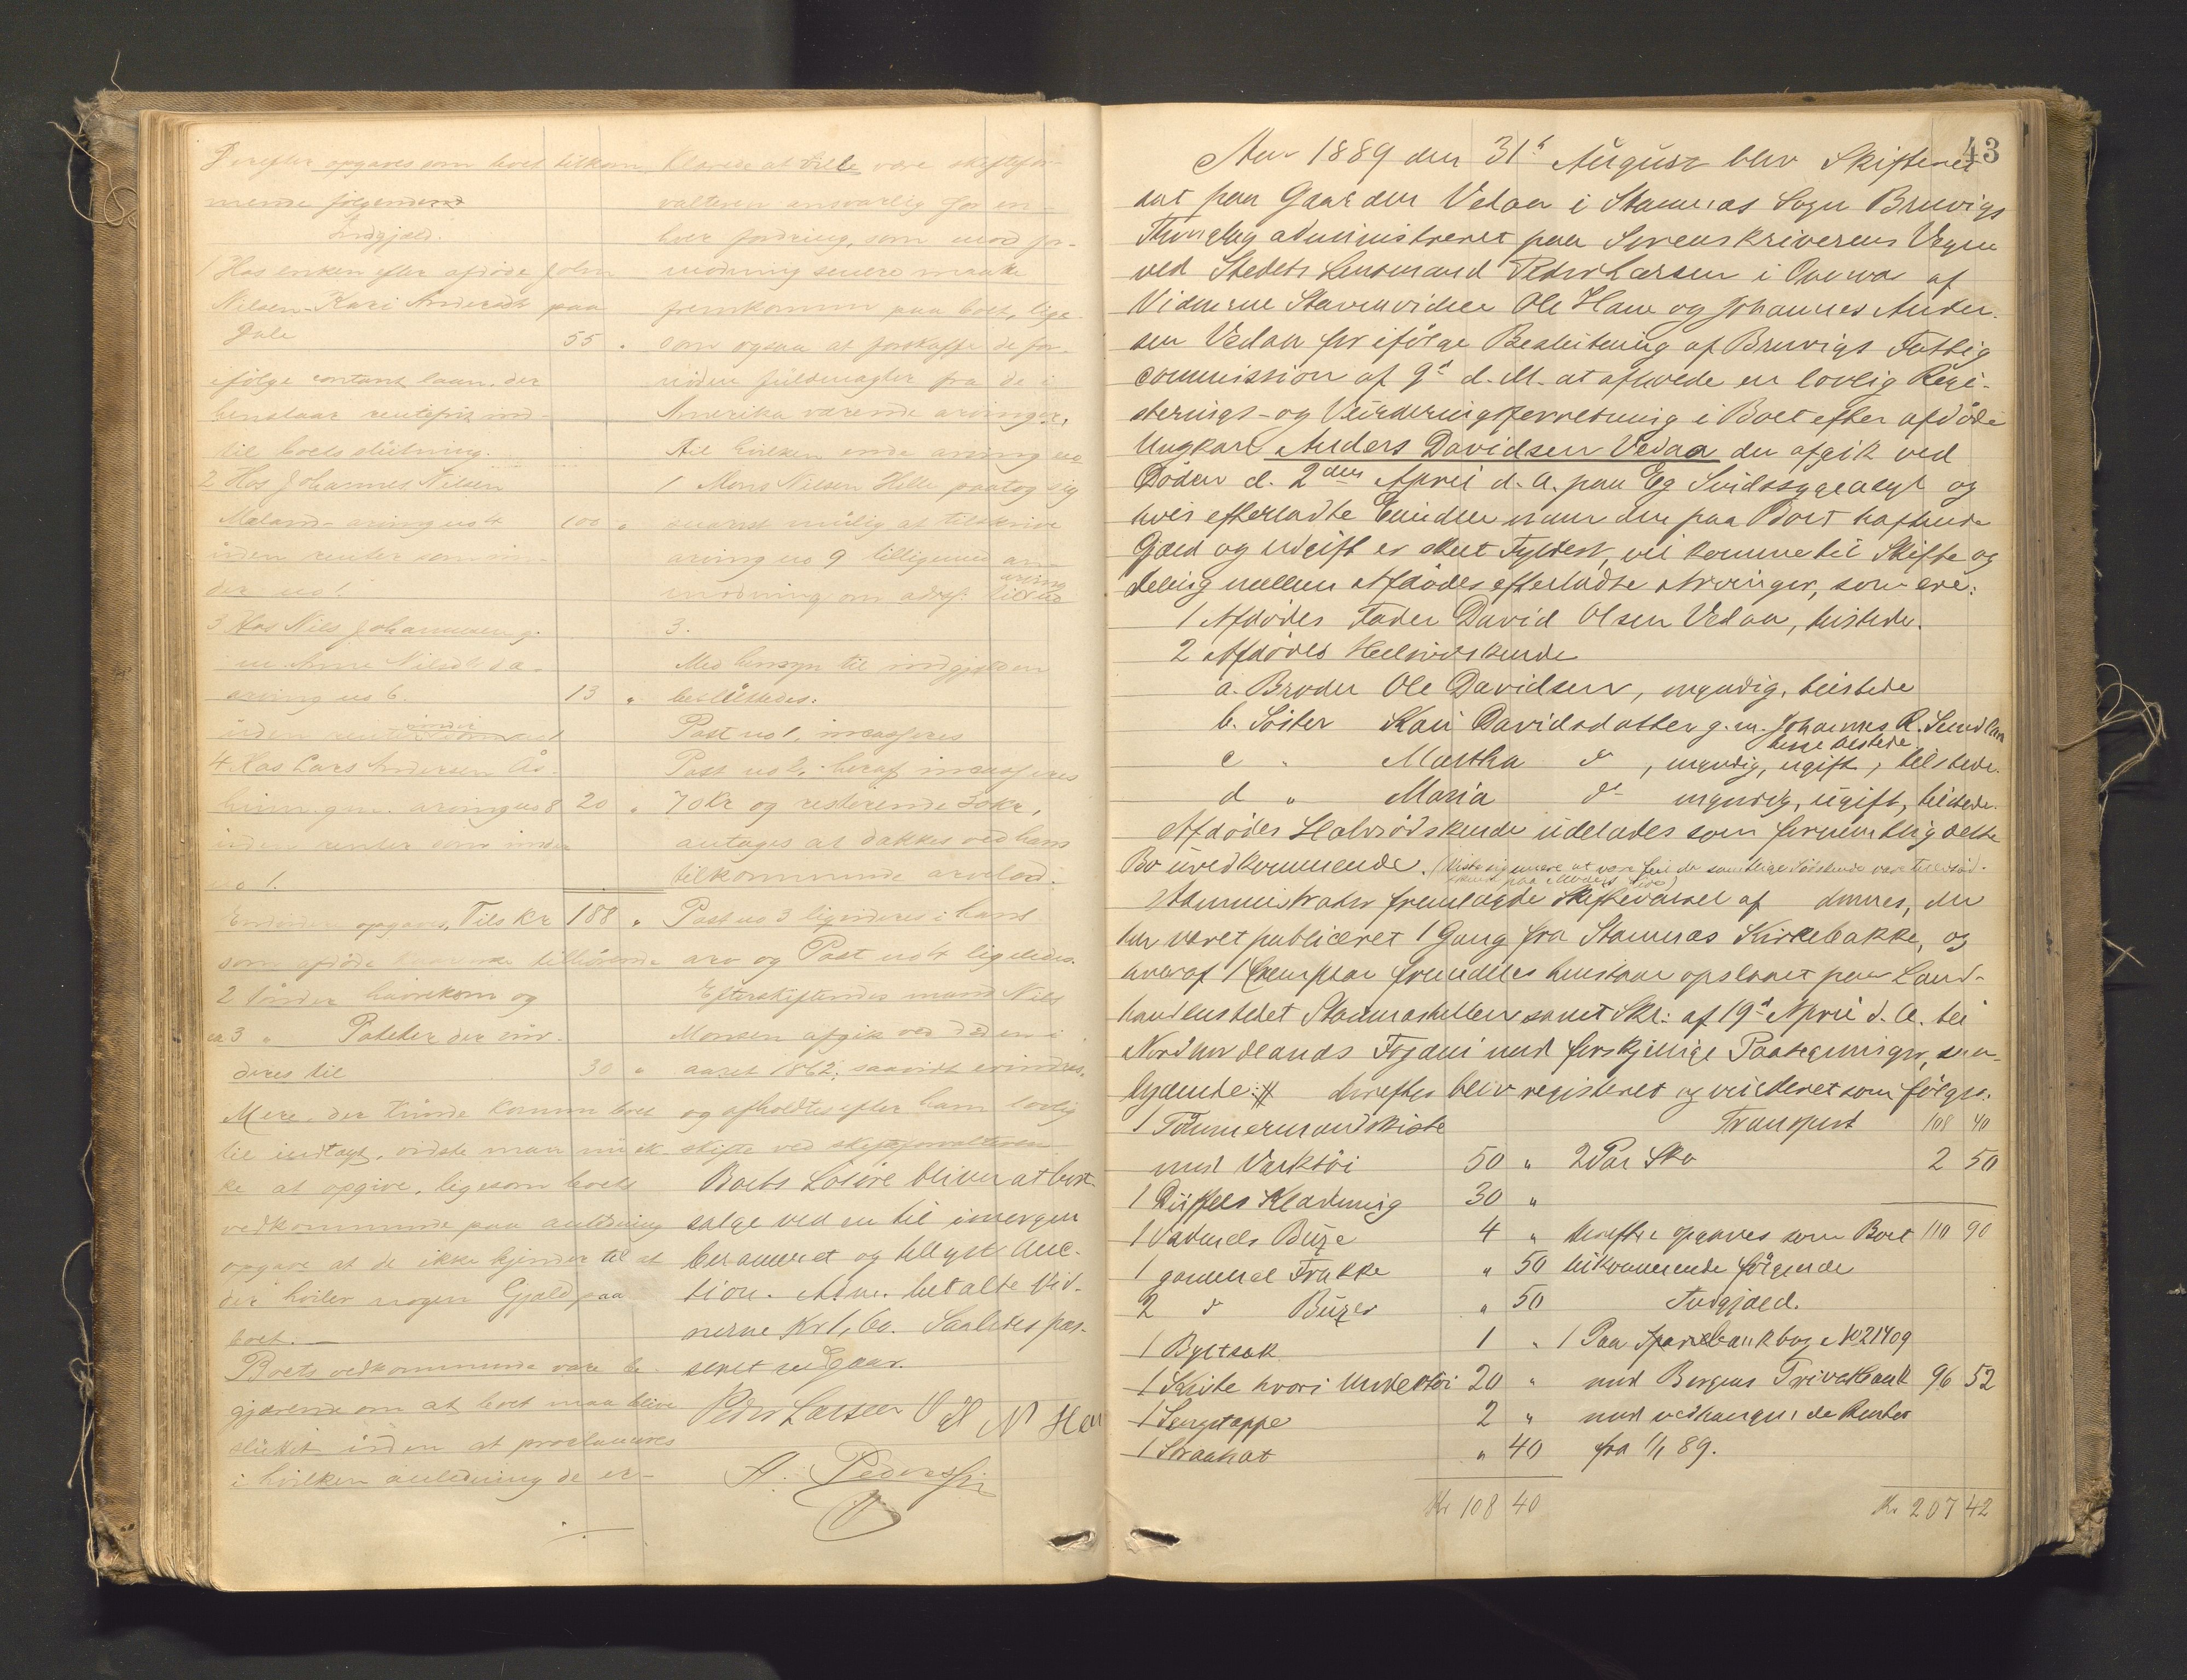 Derefter opgaves som boet tilkom
mende følgende
Indgjæld.
1 Hos enken efter afdøde John
Nilsen Kari Andersdt paa
Dale 55 "
ifølge contant laan, der
henstaar rentefrit ind-
til boets slutning.
2 Hos Johannes Nilsen
Mæland arving no 4 100 "
uden renter som un-
der no 1
3 Hos Nils Johannesen g.
m. Anne Nilsdt
arving no 6. 13 "
uden renter som under no 1
4. Hos Lars Andersen Ås-
heim g.m. arving no 8 20 "
uden renter som under
no 1.
Endvidere opgaves, Tils Kr 188 "
som afdøde tilhørende
2 tønder havrekorn og
ca 3 " Poteter der vur-
deres til 30 "
Mere, der kunde komme boet
til indtægt, vidste man nu ik-
ke at opgive, ligesom boets
vedkommende paa anledning
opgav at de ikke kjender til at
der hviler nogen Gjæld paa
boet.
Boets vedkommende vare be-
gjærende om at boet maa blive
sluttet uden at proclameres
i hvilken anledning de er-
klærede at ville være skiftefor-
valteren ansvarlig for en-
hver fordring, som mod for-
modning senere maatte
fremkomme paa boet, lige-
som ogsaa at forskaffe de for-
nødne fuldmagter fra de i
Amerika værende arvinger,
til hvilken ende arving no
1 Mons Nilsen Helle paatog sig
snarest mulig at tilskrive
arving no 9 tilligemed an-
modning om adrs. til arving no
3.
Med hensyn til indgjælden
besluttedes:
Post no 1, incasseres
Post no 2, heraf incasseres
70 Kr og resterende 30 kr,
antages at dækkes ved hans
tilkommende arvelod.
Post no 3 ligvideres i hans
arv og Post no 4 ligeledes.
Efterskiftendes mand Nils
Monsen afgik ved døden i
aaret 1862, saavidt erindres,
og afholdtes efter ham lovlig
skifte ved skifteforvalteren
Boets Løsøre bliver at bort-
sælge ved en til imorgen
berammet og tillyst Auc-
tion. Adm. betalte Vid-
nerne Kr 1,60. Saaledes pas-
seret udgaar.
Peder Larsen O H N Hau
A. Pedersen
43
Aar 1889 den 31te August blev Skifteret
sat paa Gaarden Vedaa i Stamnæs Sogn Bruvigs
Thinglag administreret paa Sorenskriverens Vegne
ved Stedets Lensmand Peder Larsen i Overvær af
Vidnerne Stævnevidne Ole Hane og Johannes Ander-
sen Vedaa for ifølge Beslutning af Bruvigs Fattig
commission af 9d d. M. at afholde en lovlig Regi-
sterings- og Vurderingsforretning i Boet efter afdøde
Ungkarl Anders Davidsen Vedaa der afgik ved
Døden d. 2den April d. A. paa Eg Sindssygeasyl og
hvis efterladte Eiendele naar den paa Boet haftende
Gjæld og udgift er skeet Fyldest, vil komme til Skifte og
deling mellem Afdødes efterladte Arvinger, som ere:
1 Afdødes Fader David Olsen Vedaa, tilstede.
2 Afdødes Helsødskende
a. Broder Ole Davidsen, myndig, tilstede
b. Søster Kari Davidsdatter g. m. Johannes R.
begge tilstede
c " Martha do , myndig, ugift, tilstede.
d " Maria do myndig, ugift, tilstede.
Afdødes Halvsødskende udelades som formentlig dette
Bo uvedkommende. (Viste sig senere at være feil da samtlige Sødskende vare Helsød-
skende paa Moders Side)
Administrator fremlagde Skiftevarsel af dennes, der
har været publiceret 1 Gang fra Stamnæs Kirkebakke, og
hvoraf 1 Exemplar fremdeles henstaar opslaaet paa Land-
handlerstedet Stamneshellen samt Skr: af 19d April d. A. til
Nordhordlands Fogderi med forskjellige Paategninger, saa-
lydende: # derefter blev registeret og vurderet som følger.
1 Tømmermandskiste
med Værktøi 50 "
1 Düffels Klædning 30 "
1 Vadmels Buxe 4 "
1 gammel Frakke " 50
2 do Buxer " 50
1 Byltsæk 1 "
1 Kiste hvori Undertøi 20 "
1 Sengetæppe 2 "
1 Straahat " 40
Kr 108 40
Transport 108 40
2 Par Sko 2 50
derefter opgaves som Boet 110 90
tilkommende følgende
Indgjæld.
1 Paa Sparebankbog No 21409
med Bergens Privatbank 96 52
med vedhængende Renter
fra 1/1 89.
Kr 207 42